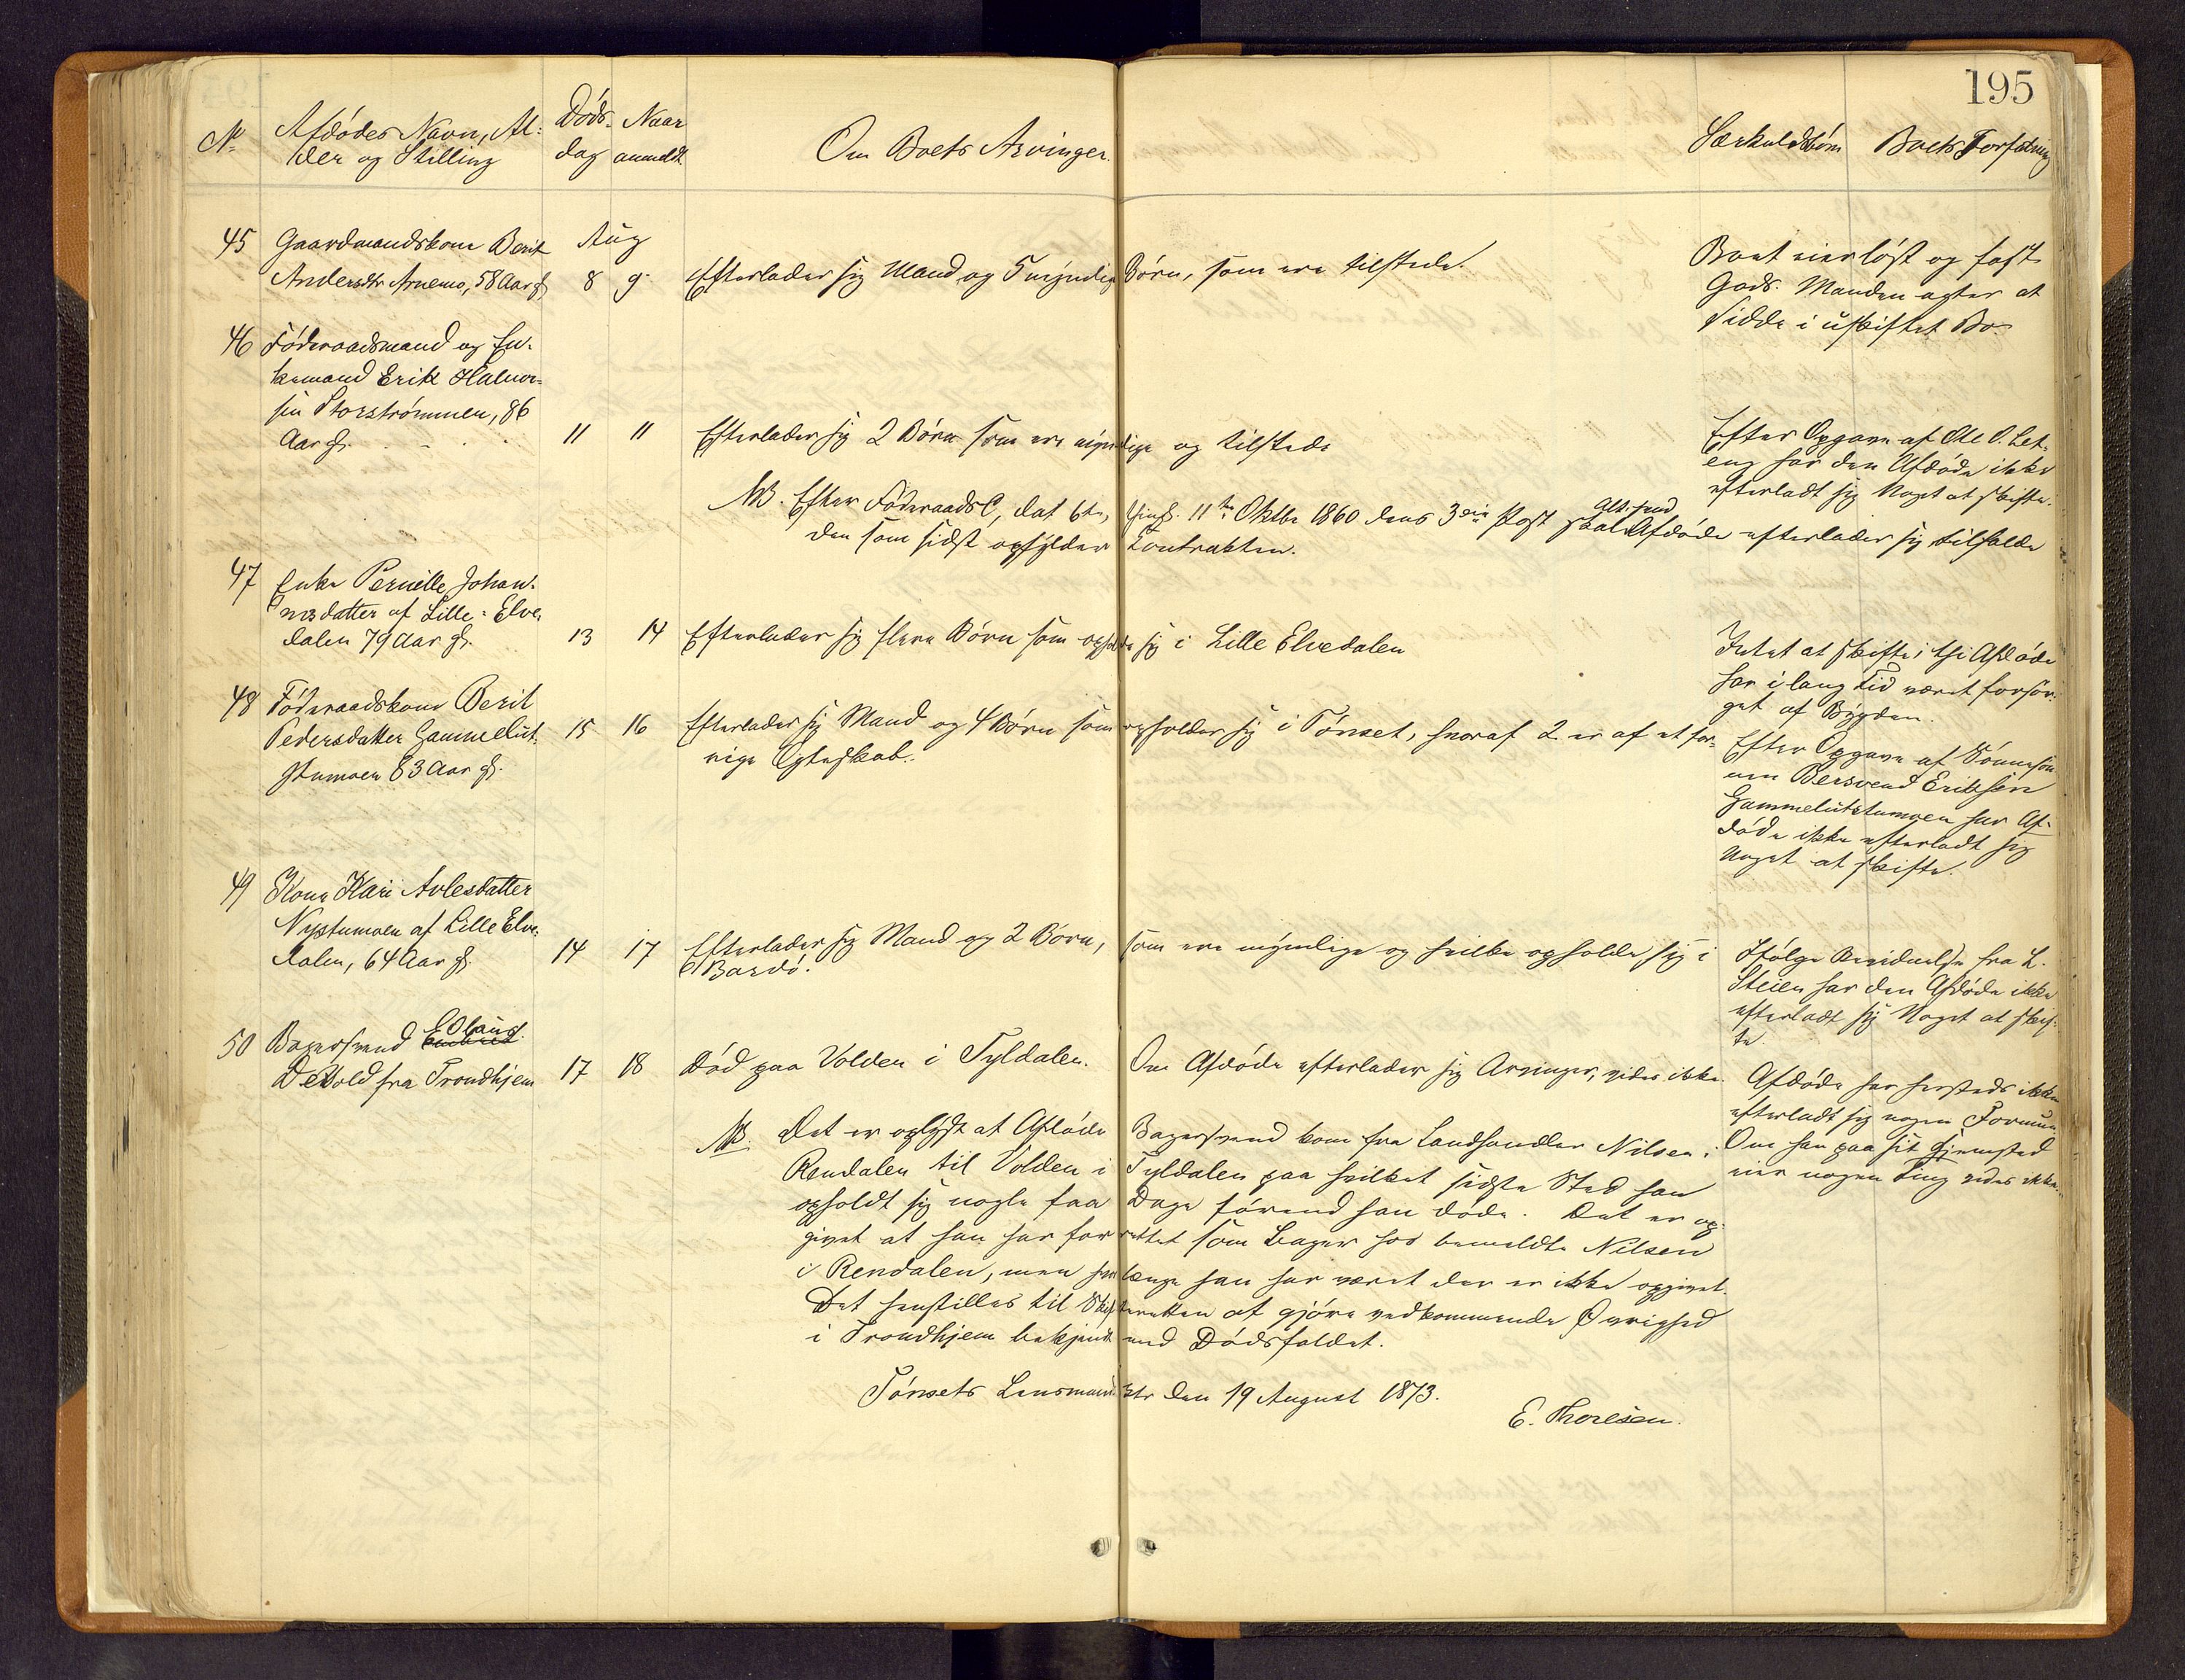 195
No
Afdödes Navn, Al-
der og Stilling
Döds-
dag
Naar
anmeldt
Om Boets Arvinger.
Særkuldsbörn
Boets Forfatning
45 Gaardmandskone Berit
Andersdtr Arnemo, 58 Aar gl.
Aug
8 9 Efterlader sig Mand og 5 myndige Börn, som ere tilstede.
Boet eier löst og fast
Gods. Manden agter at
sidde i uskiftet Bo.
46 Föderaadsmand og En-
kemand Erik Halvor-
sen Storströmmen, 86
Aar gl.
11 11 Efterlader sig 2 Börn som ere myndige og tilstede
Efter Opgave af Ole O. Let-
eng har den Afdöde ikke
efterladt sig Noget at skifte.
NB. Efter Föderaads C, dat 6te, thingl. 11te Oktbr 1860 dens 3die Post skal Alt hvad Afdöde efterlader sig tilfalde
den som sidst opfylder Contrakten.
47 Enke Pernille Johan-
nesdatter af Lille-Elve-
dalen 79 Aar gl.
13 14 Efterlader sig flere Börn som opholde sig i Lille Elvedalen
Intet at skifte, thi Afdöde
har i lang Tid været forsör-
get af Bygden.
48 Föderaadskone Berit
Pedersdatter Gammelut-
stumoen 83 Aar gl.
15 16 Efterlader sig Mand og 4 Börn som opholder sig i Tönset, hvoraf 2 er af et for-
rige Egteskab.
Efter Opgave af Sönnesön-
nen Bersvend Eriksen
Gammelutstumoen har Af-
döde ikke efterladt sig
Noget at skifte.
49 Kone Kari Avlesdatter
Nystumoen af Lille Elve-
dalen, 64 Aar gl.
14 17 Efterlader sig Mand og 2 Börn, som ere myndige og hvilke opholde sig i
Bardö.
Ifölge Anmeldelse fra L.
Steien har den Afdöde ikke
efterladt sig Noget at skif-
te.
50 Bagersvend Olaus
Devold fra Trondhjem
17 18 Död paa Volden i Tyldalen. Om Afdöde efterlader sig Arvinger, vides ikke.
Afdöde har hersteds ikke
efterladt sig nogen Formue.
Om han paa sit Hjemsted
eier nogen Ting vides ikke.
NB. Det er oplyst at Afdöde Bagersvend kom fra Landhandler Nilsen i
Rendalen til Volden i Tyldalen paa hvilket sidste Sted han
opholdt sig nogle faa Dage förend han döde. Det er op-
givet at han har forrettet som Bager hos bemeldte Nilsen
i Rendalen, men hvorlænge han har været der er ikke opgivet.
Det henstilles til Skifteretten at gjöre vedkommende Övrighed
i Trondhjem bekjendt med Dödsfaldet.
Tönsets Lensmandsktr den 19 August 1873.
E. Thoresen.